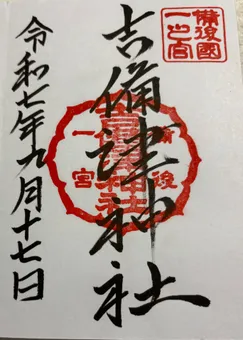 備後國
一之宮
吉備津神社
備後
一宮
吉備津神社
令和七年九月十七日